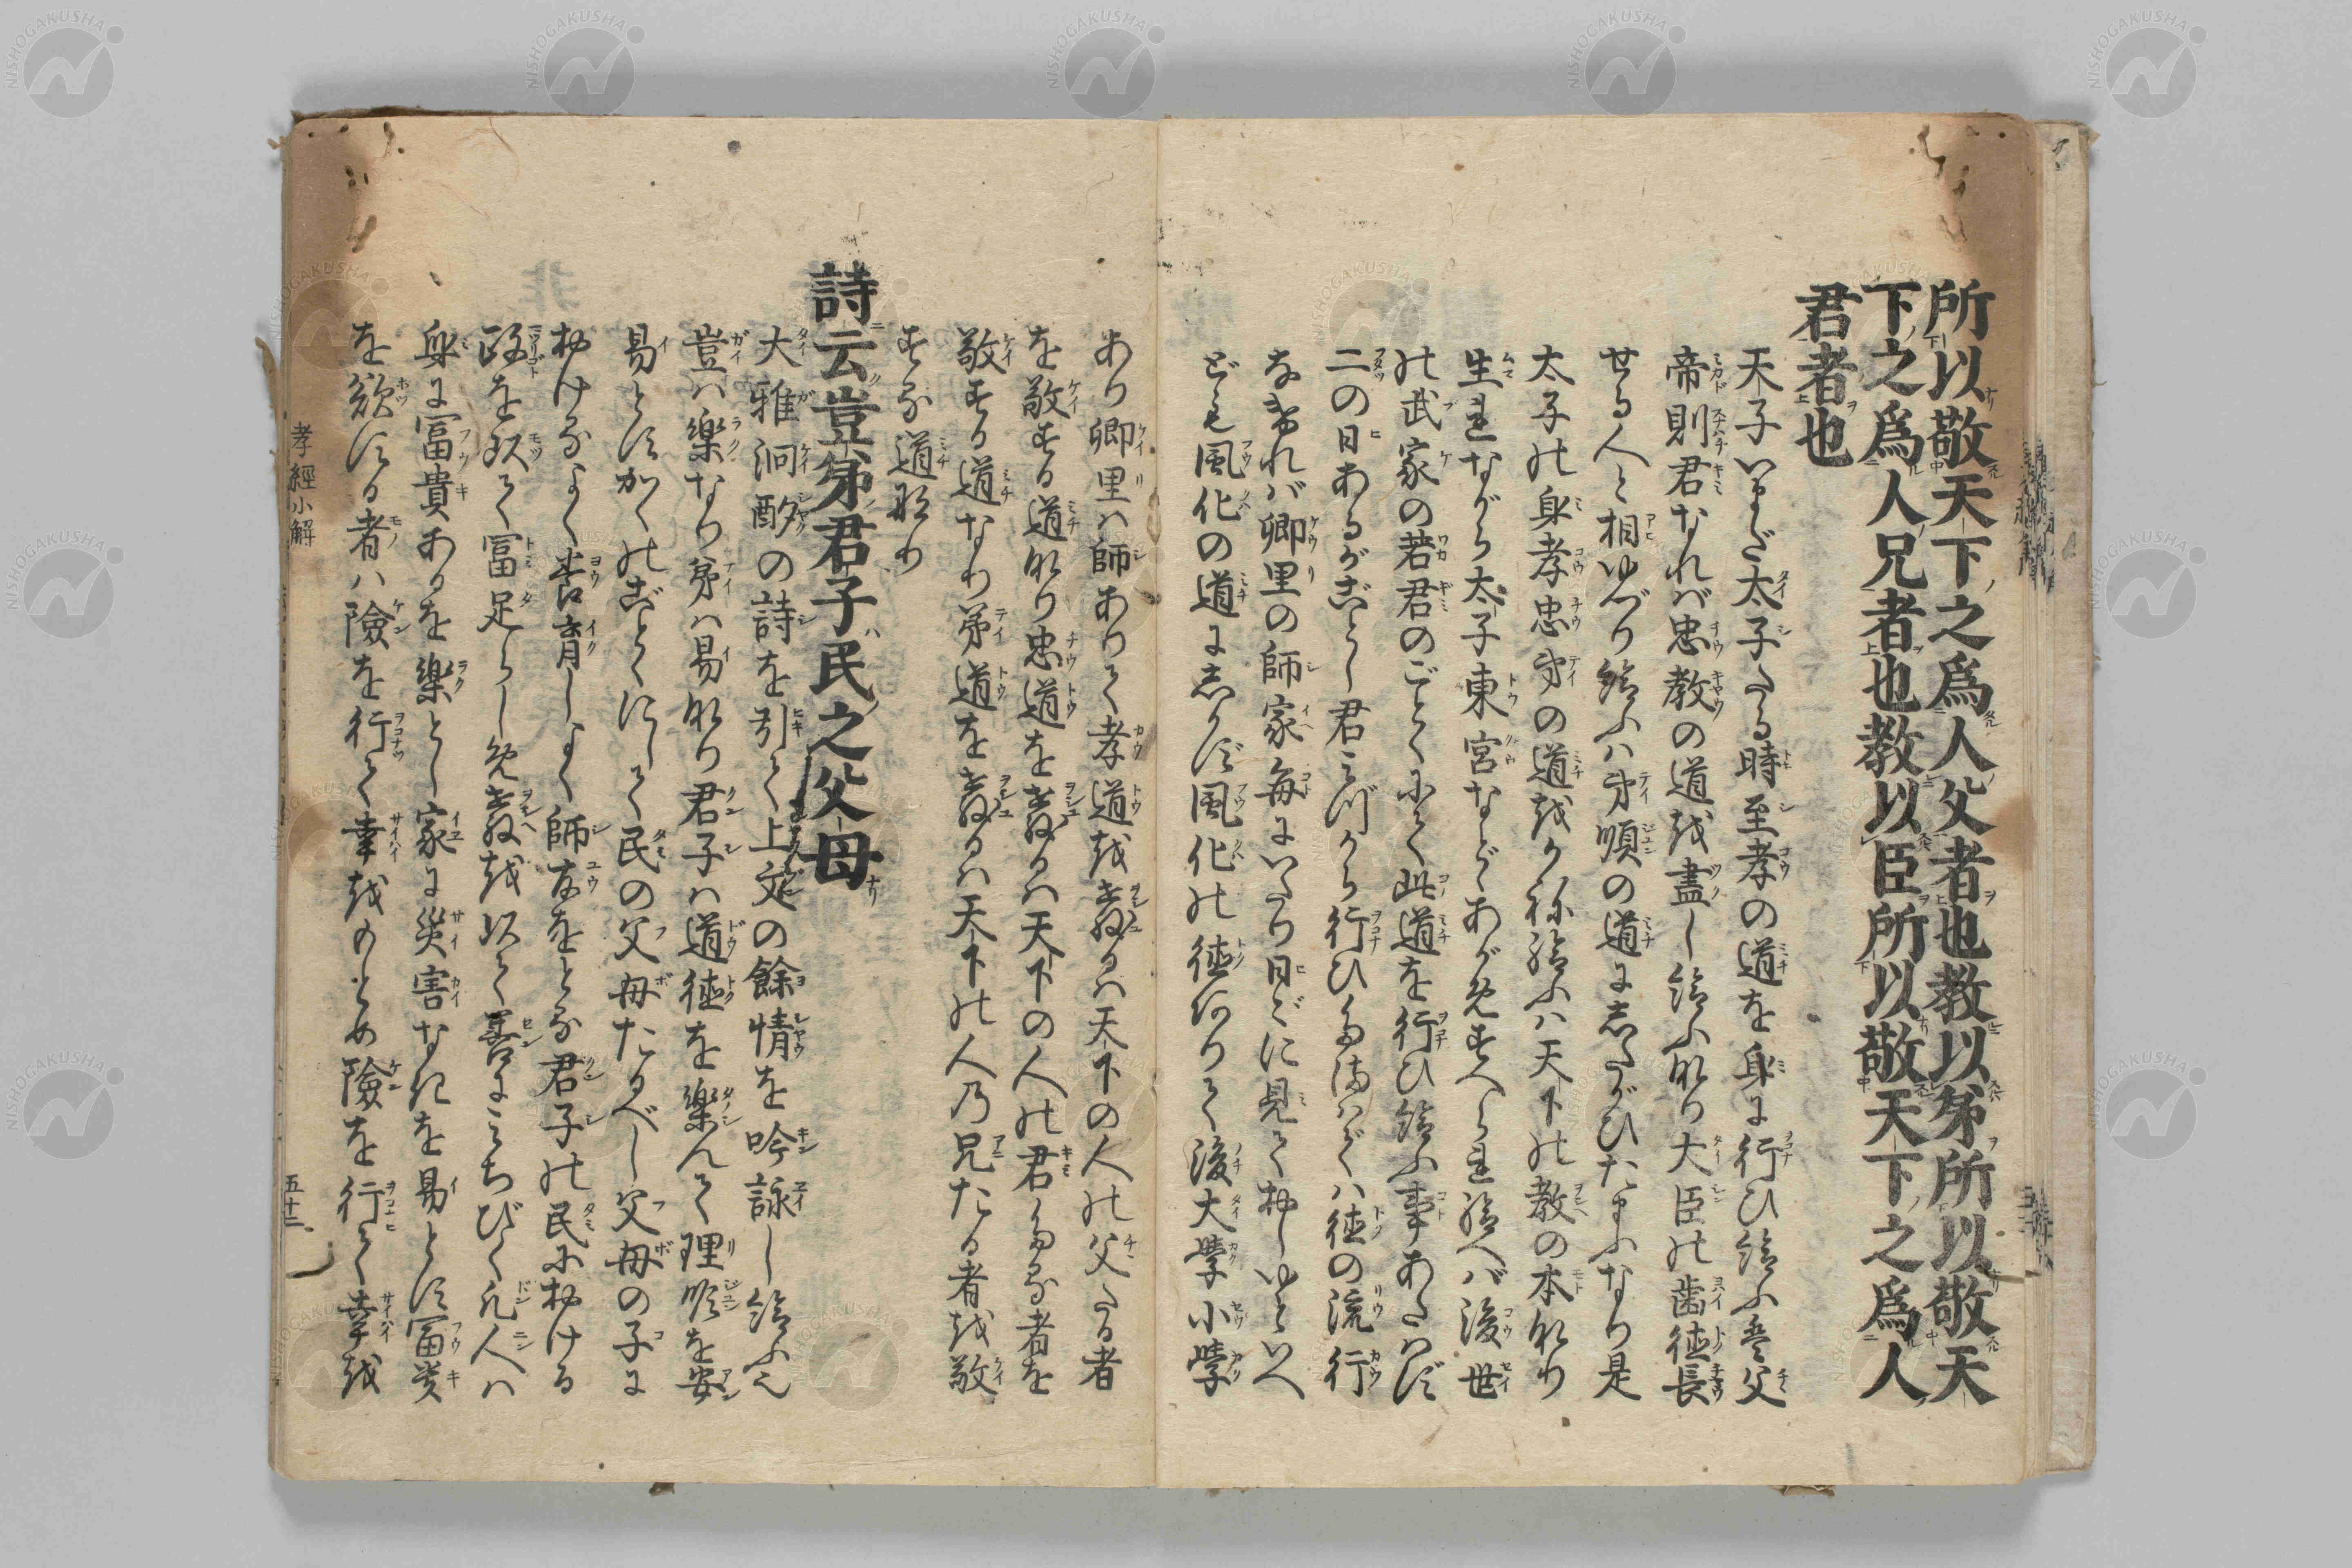 所以敬天下之爲人父者也教以弟所以敬天
下之爲人兄者也教以臣所以敬天下之爲人
君者也
天子いまだ太子たる時至孝の道を身に行ひ給ふ是父
帝則君なれば忠教の道を盡し給ふ也大臣の歯徳長
せる人と相ゆづり給ふは弟順の道にしたがひたまふなり是
太子の身孝忠弟の道をかね給ふは天下の教の本なり
生まれながら太子東宮などあがめすへられ給へば後世
の武家の若君のごとくにて此道を行ひ給ふ事あたはず
二の日あるがごとし君みづから行ひたまはざれば徳の流行
なければ郷里の師家毎にいたり日〻に見て押しゆといへ
ども風化の道にしかず風化の徳ありて後大學小學
あり郷里に師ありて孝道を教るは天下の人の父たる者
を敬する道なり忠道を教るは天下の人の君たる者を
敬する道なり弟道を教るは天下の人の兄たる者を敬
する道なり
詩云豈弟君子民之父母
大雅泂酌の詩を引て上文の餘情を吟詠し給ふ
豈は樂なり弟は易なり君子は道徳を樂んで理順を安
易とすかくのごとくにして民の父母たるべし父母の子に
おけるよく養育しよく師友をとる君子の民における
政を以て富足らしめ教を以て善にみちびく凡人は
身に富貴あるを樂とし家に災害なきを易とす富貴
を欲する者は險を行て幸をもとめ險を行て幸を
孝經小解
五十二
NISHOGAKUSHA